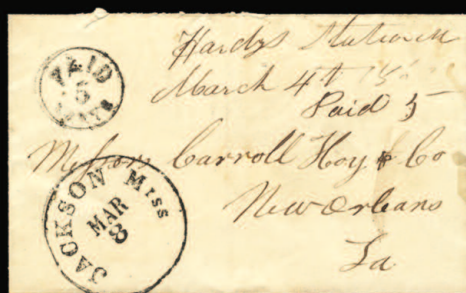 Hardys Station
March 4th
Paid 5
Messrs Carroll Hoy & Co
New Orleans
La
PAID
5
JACKSON Miss
MAR
8